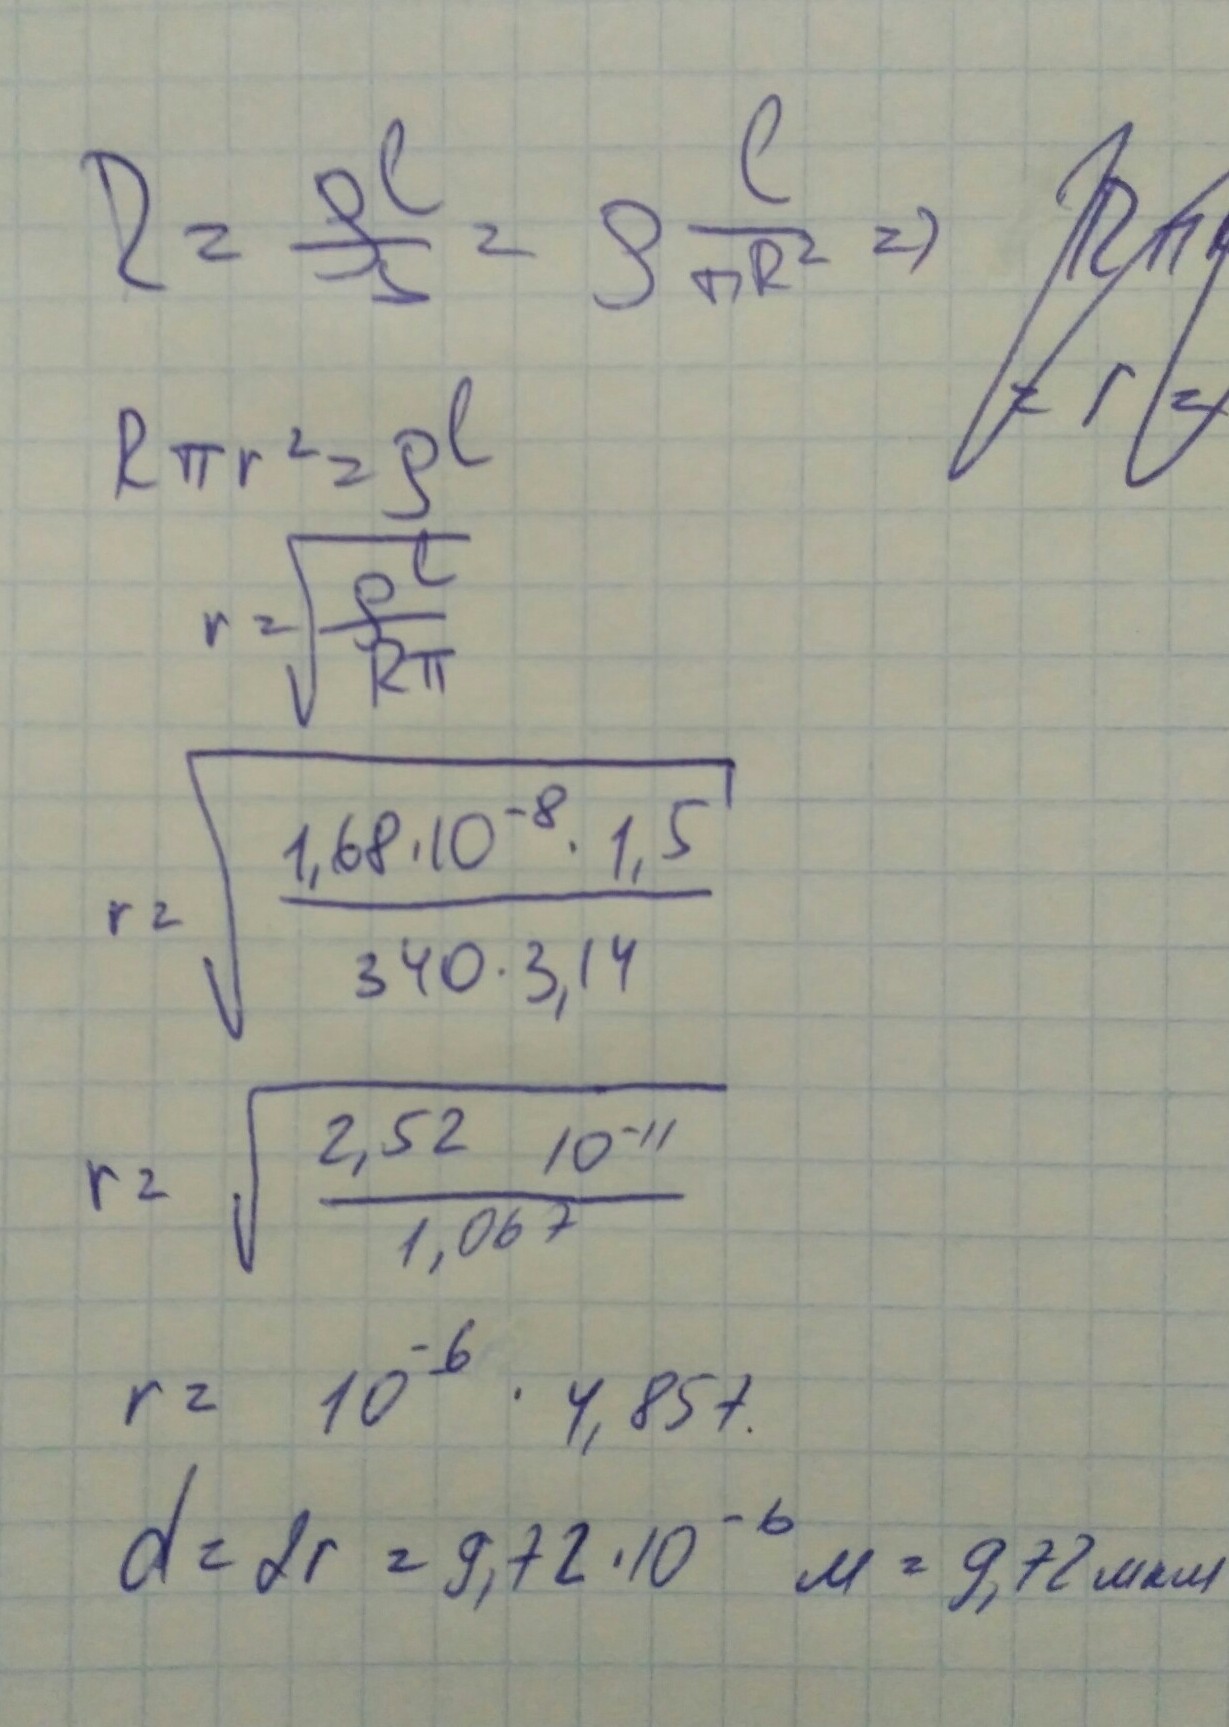 R = ρl/S = ρ l/πR² =>
Rπr² = ρl
r = √(ρl/Rπ)
r = √(1,68·10⁻⁸·1,5/340·3,14)
r = √(2,52 10⁻¹¹/1,067)
r = 10⁻⁶ · 4,857.
d = 2r = 9,72·10⁻⁶ м = 9,72 мкм